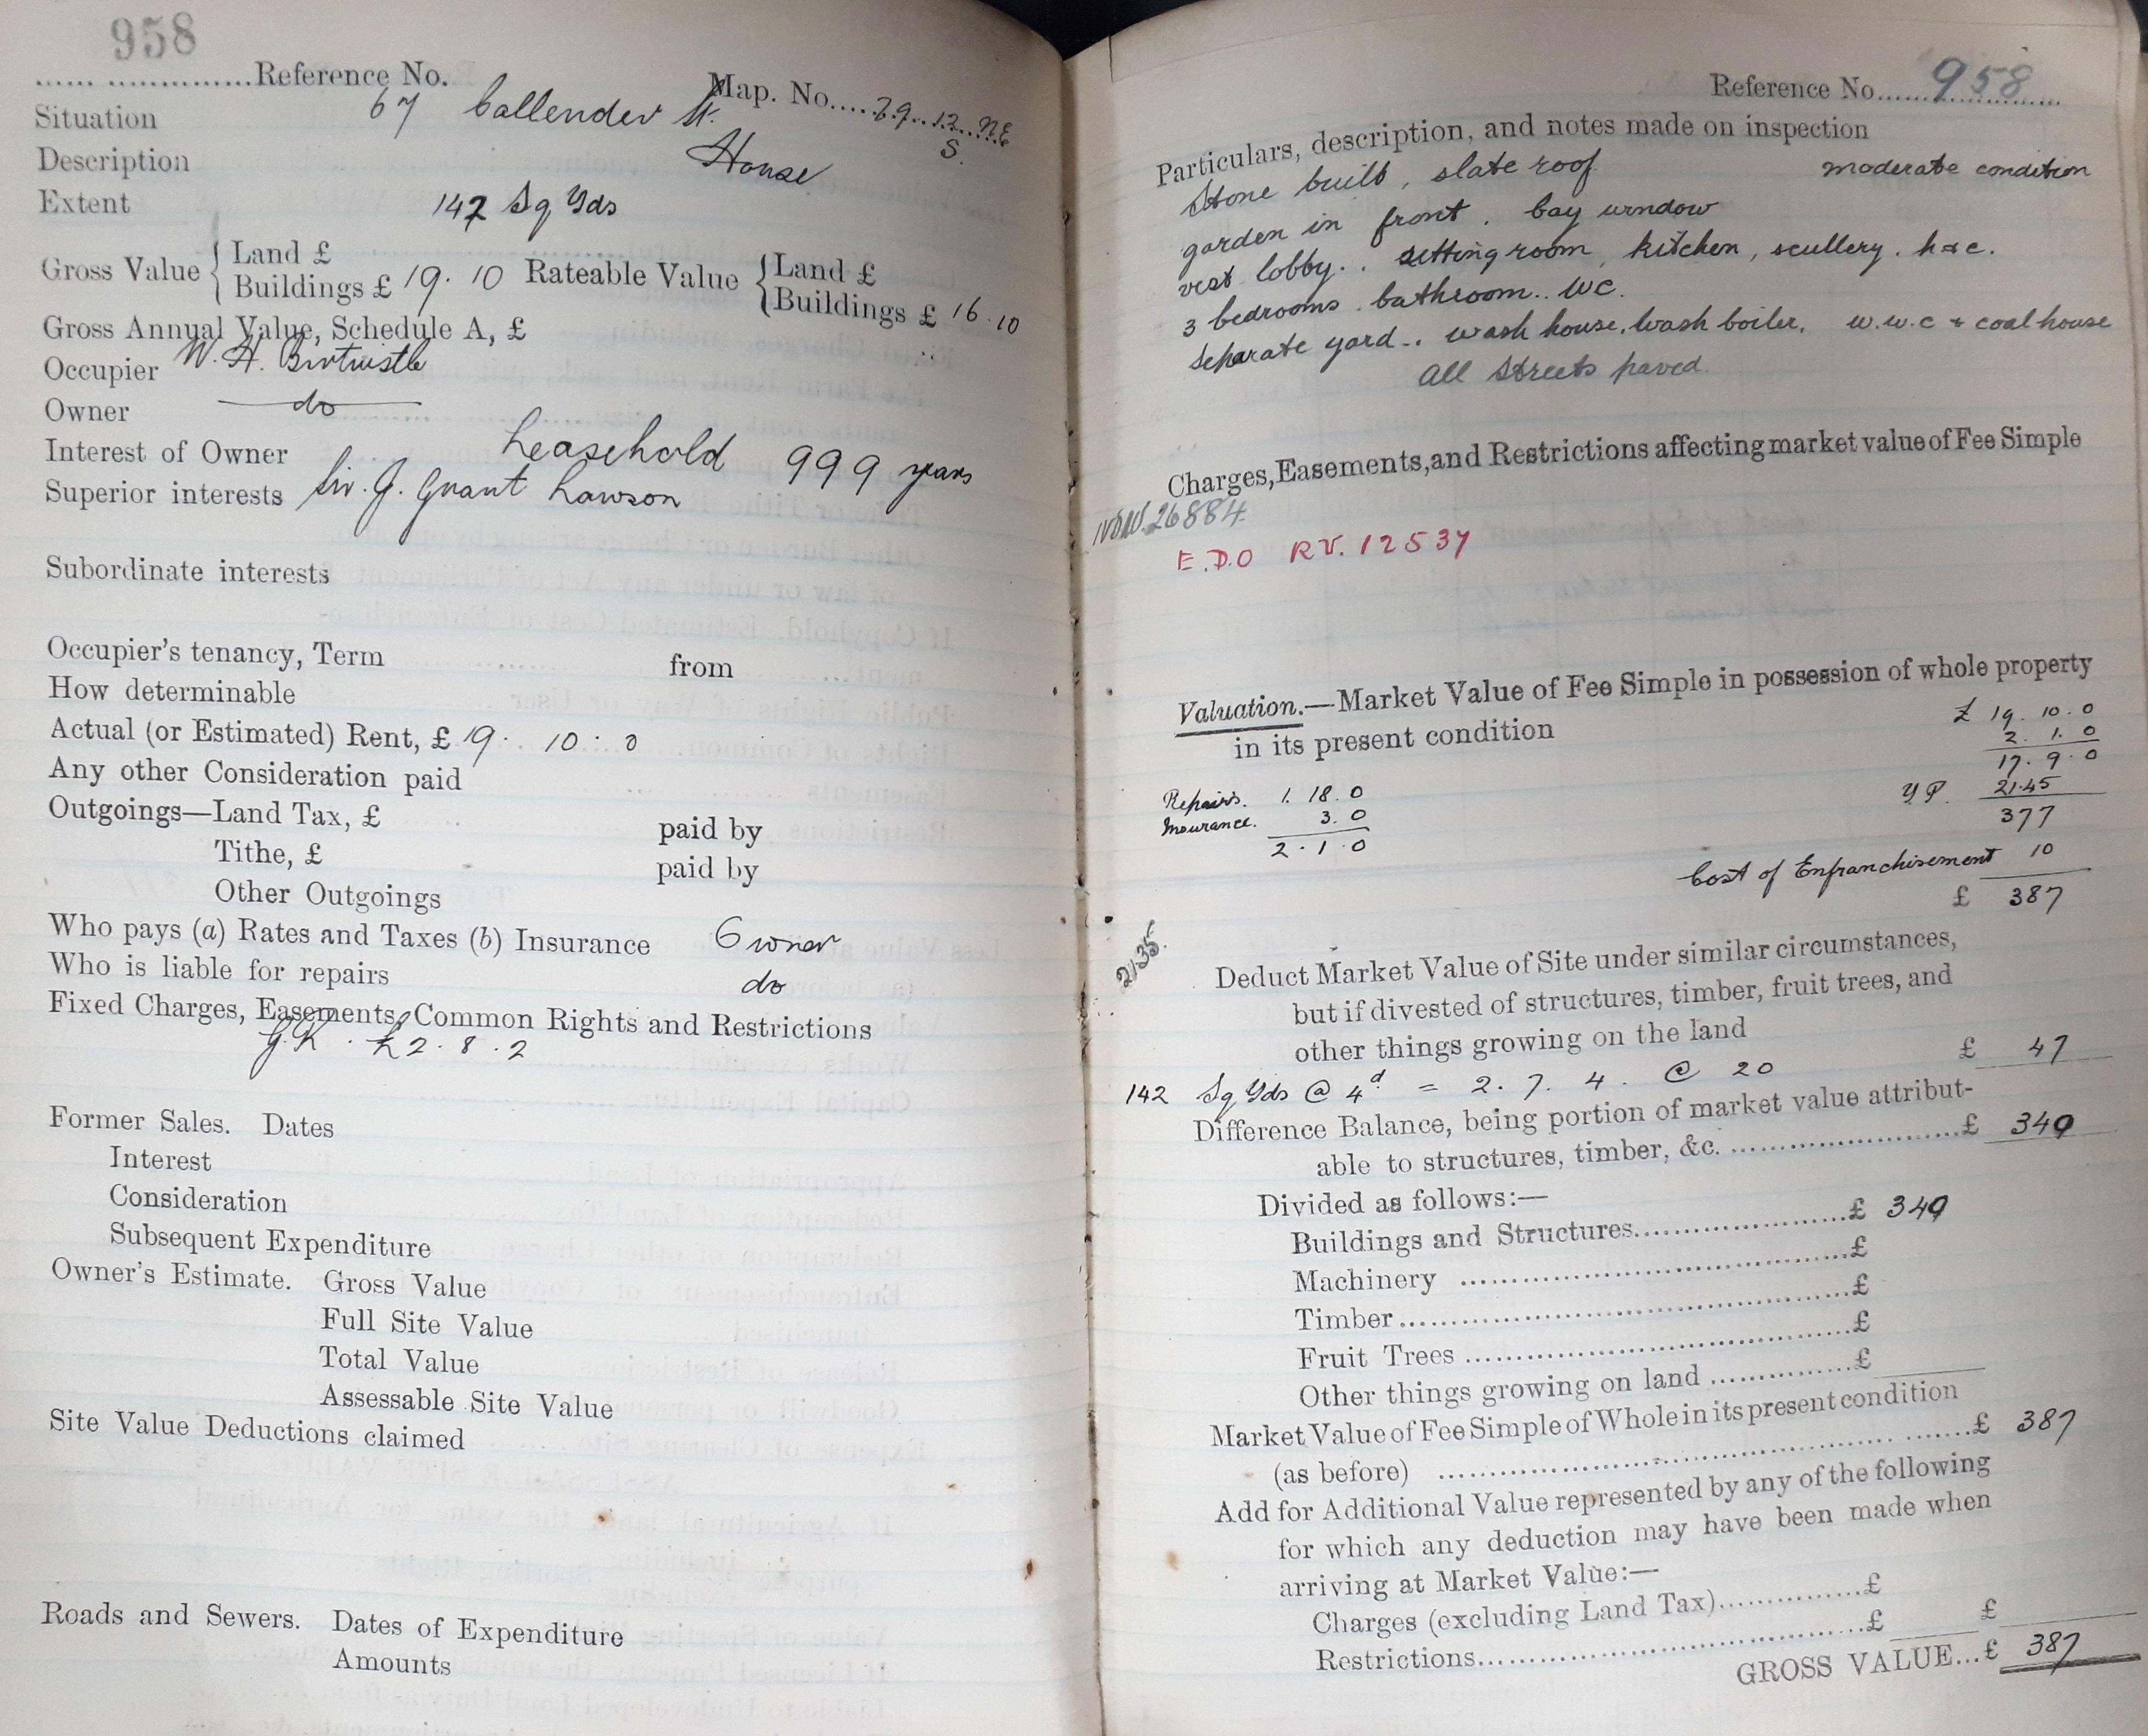 958
...... ...............Reference No. Map. No.....79..12...N.E
S.
Situation 67 Callender St.
Description House
Extent 142 Sq Yds
Gross Value { Land £ Rateable Value { Land £
Buildings £ 19. 10 Buildings £ 16.10
Gross Annual Value, Schedule A, £
Occupier W. H. Birtwistle
Owner do
Interest of Owner Leasehold 999 years
Superior interests Sir. J. Grant Lawson
Subordinate interests
Occupier's tenancy, Term from
How determinable
Actual (or Estimated) Rent, £ 19. 10 . 0
Any other Consideration paid
Outgoings—Land Tax, £ paid by
Tithe, £ paid by
Other Outgoings
Who pays (a) Rates and Taxes (b) Insurance Owner
Who is liable for repairs do
Fixed Charges, Easements, Common Rights and Restrictions
G.R. £2. 8. 2
Former Sales. Dates
Interest
Consideration
Subsequent Expenditure
Owner's Estimate. Gross Value
Full Site Value
Total Value
Assessable Site Value
Site Value Deductions claimed
Roads and Sewers. Dates of Expenditure
Amounts
Reference No......958......
Particulars, description, and notes made on inspection
Stone built, slate roof moderate condition
garden in front. bay window
vest lobby.. sitting room, kitchen, scullery. h & c.
3 bedrooms. bathroom.. WC.
separate yard.. wash house, wash boiler, w.w.c + coal house
All Streets paved.
Charges, Easements, and Restrictions affecting market value of Fee Simple
26884
E.D.O RV. 12537
Valuation.—Market Value of Fee Simple in possession of whole property
in its present condition
£ 19. 10. 0
2. 1. 0
17. 9. 0
Y P. 21.45
377
Repairs. 1. 18. 0
Insurance. 3. 0
2. 1. 0
Cost of Enfranchisement 10
£ 387
2135.
Deduct Market Value of Site under similar circumstances,
but if divested of structures, timber, fruit trees, and
other things growing on the land £ 47
142 Sq Yds @ 4d = 2. 7. 4. @ 20
Difference Balance, being portion of market value attribut-
able to structures, timber, &c. ........................£ 340
Divided as follows:—
Buildings and Structures........................£ 340
Machinery ........................£
Timber........................£
Fruit Trees ........................£
Other things growing on land ...............£
Market Value of Fee Simple of Whole in its present condition
(as before) ........................£ 387
Add for Additional Value represented by any of the following
for which any deduction may have been made when
arriving at Market Value:—
Charges (excluding Land Tax)...............£
Restrictions........................£ £
GROSS VALUE...£ 387